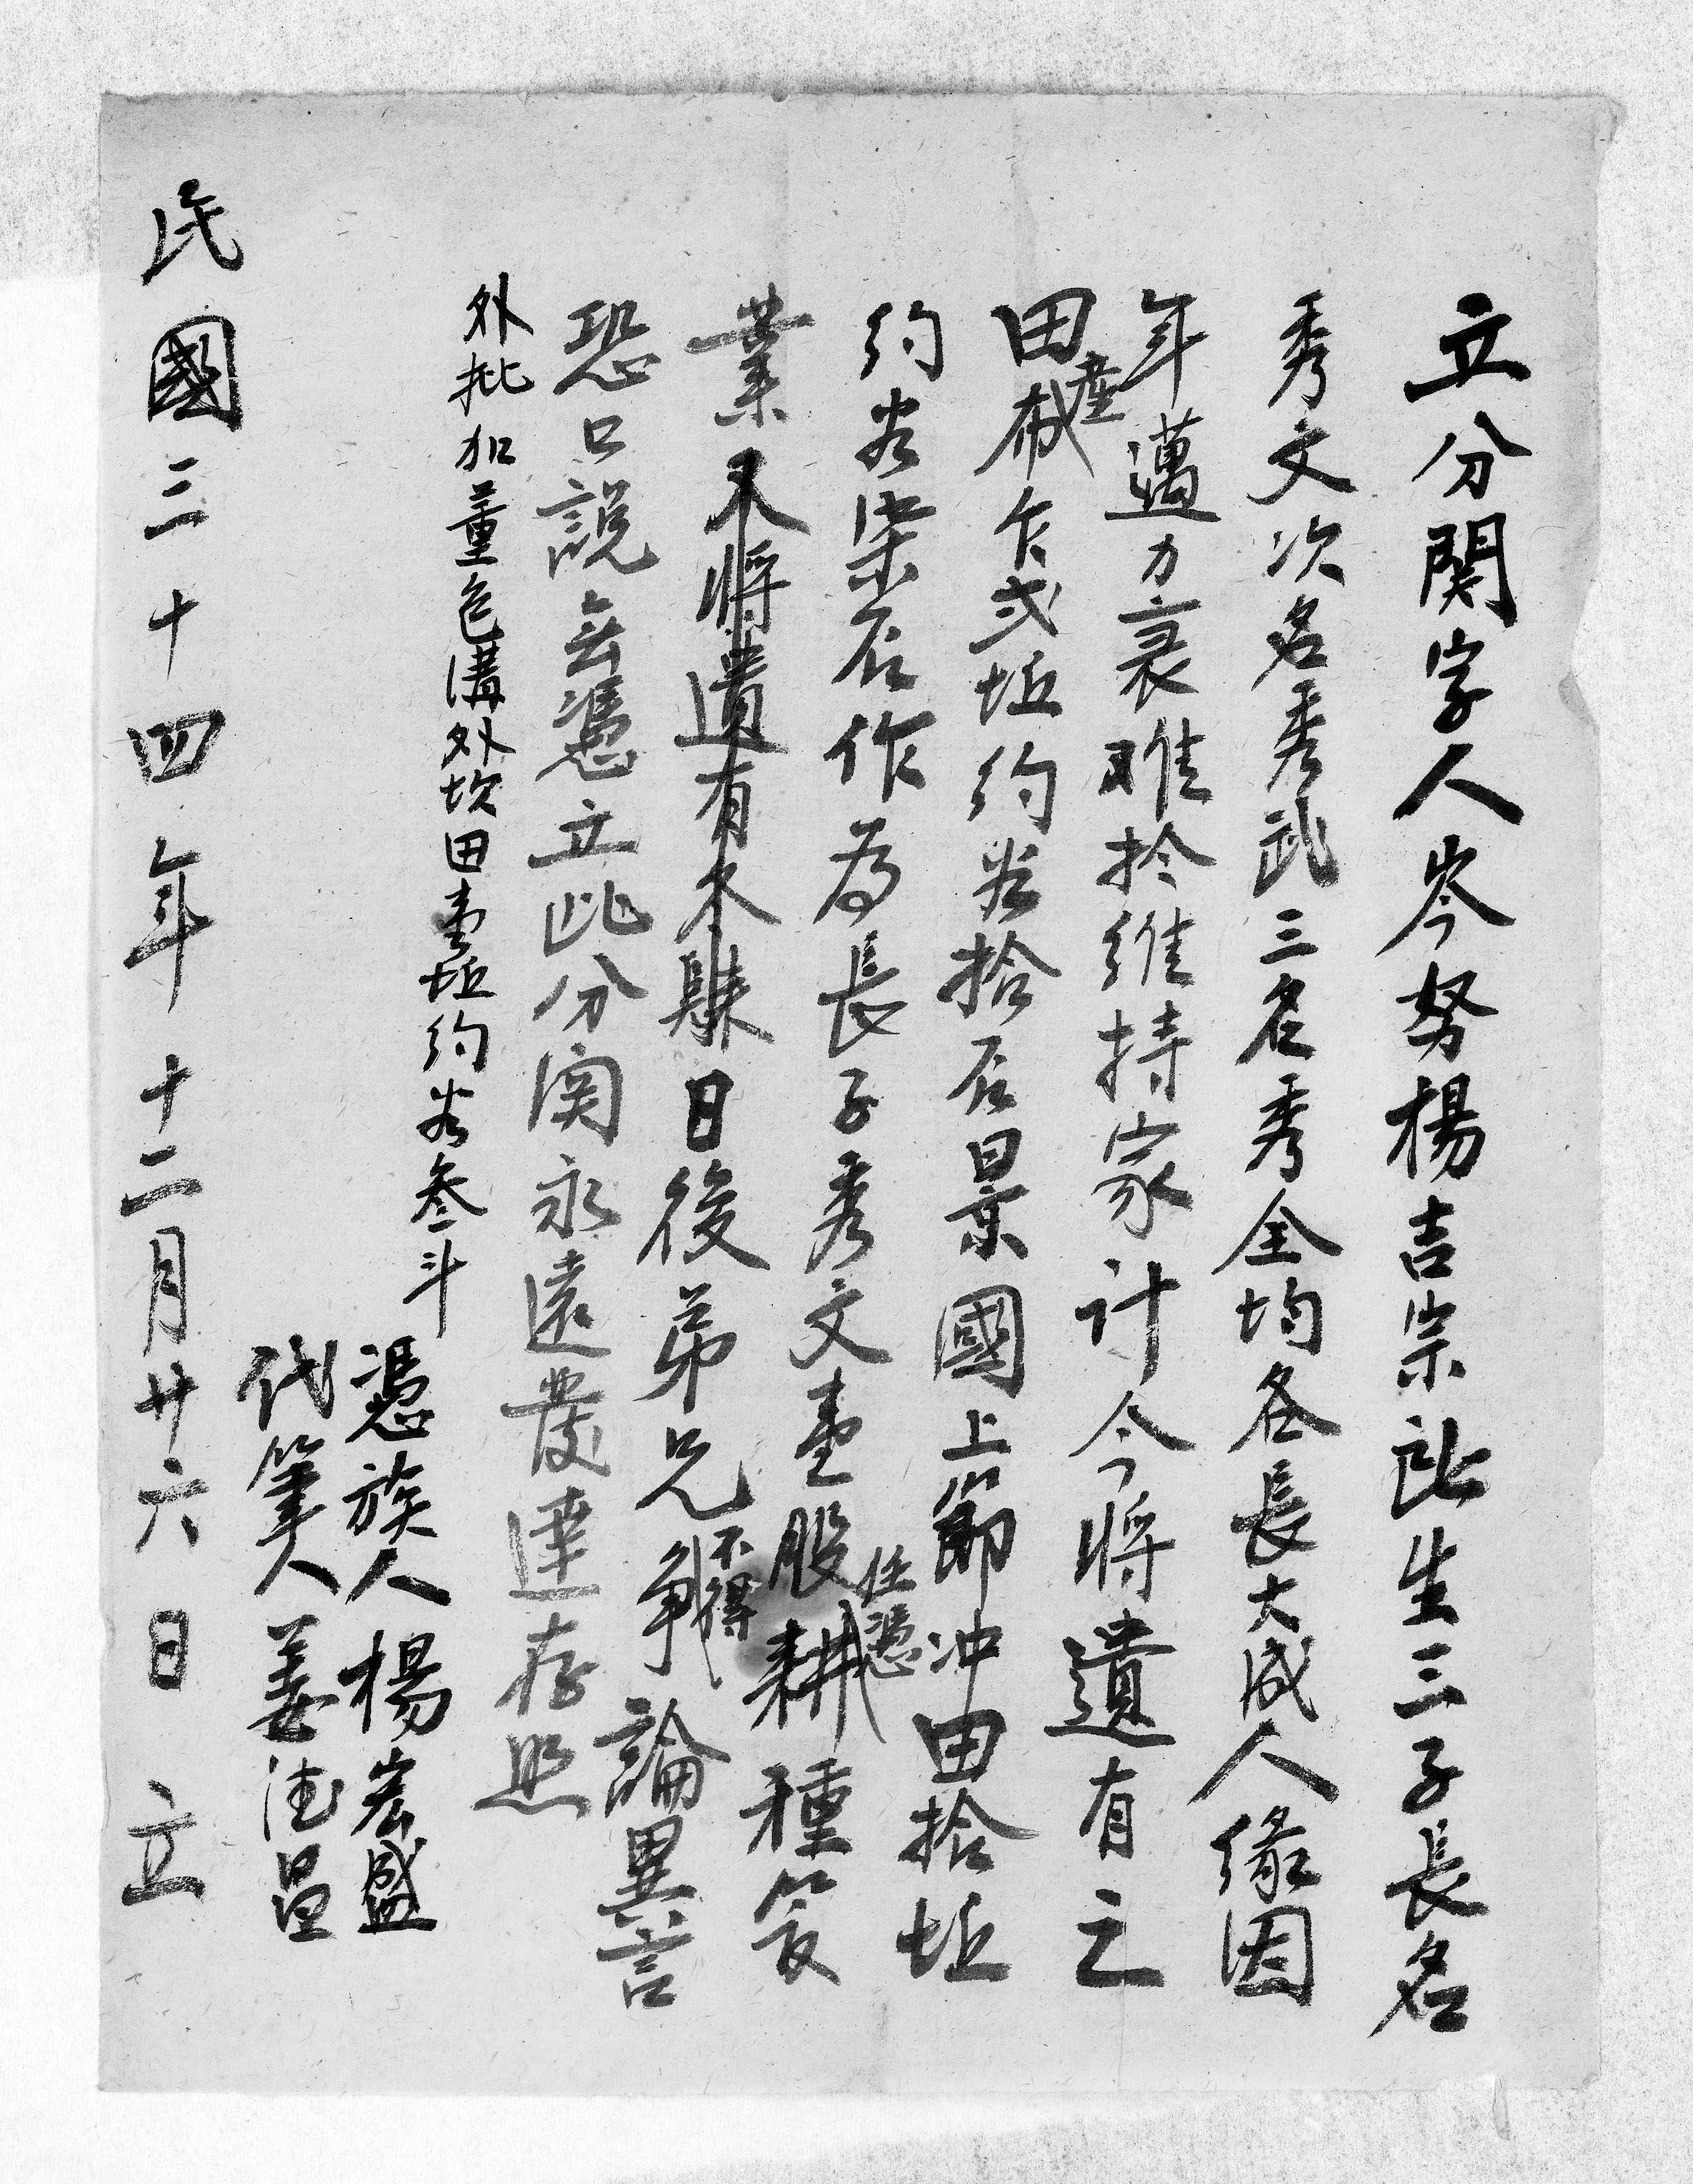 立分関字人岑努楊吉宗訨生三子長名
秀文次名秀武三名秀全均各長大成人緣因
年邁力衰难扵维持家计今将遺有之
田產 乍弍坵约谷拾石景國上節冲田拾坵
约谷柒石作為長子秀文壹股任憑耕種管
業又将遺有冬肆日後弟兄不得争論異言
恐口説無憑立此分関永遠發達存照
外批加董色溝外坎田壹坵约谷叁斗
憑族人楊宏盛
代筆人姜德昌
民國三十四年十二月廿六日 立